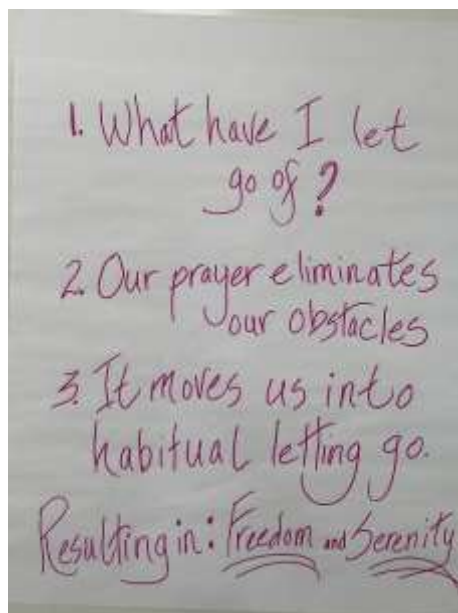 1. What have I let
go of?
2. Our prayer eliminates
our obstacles
3. It moves us into
habitual letting go.
Resulting in: Freedom and Serenity